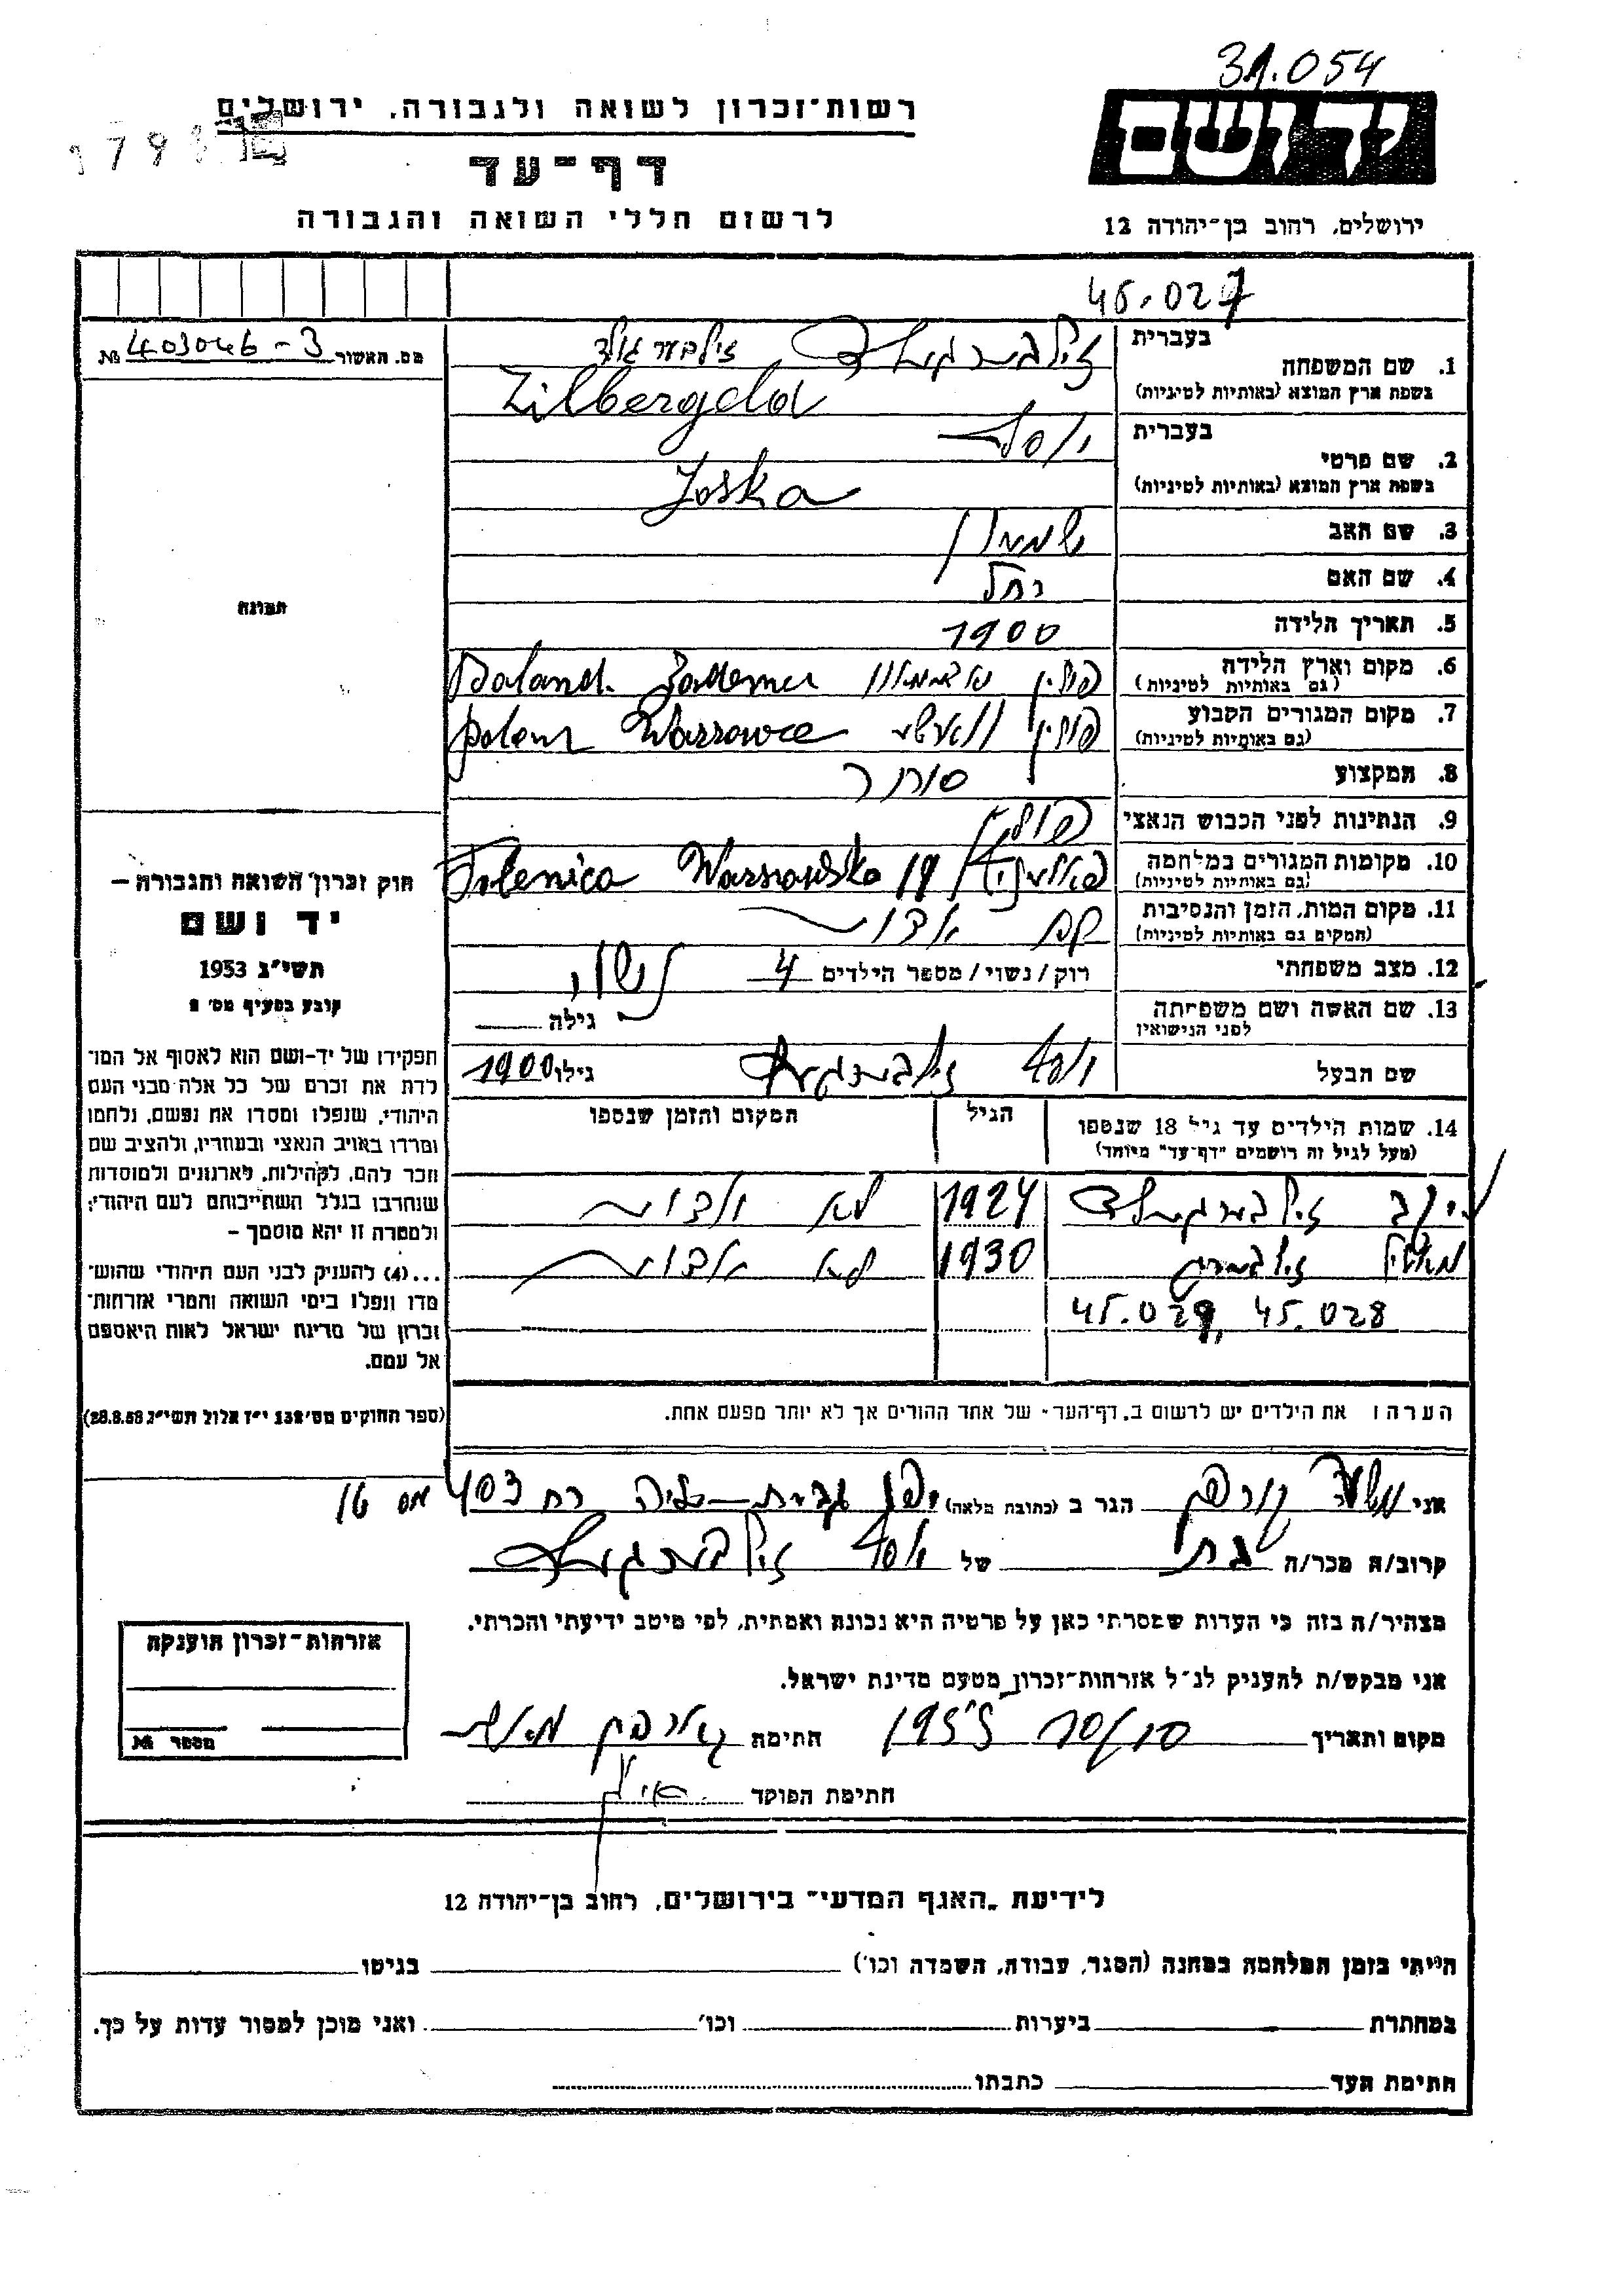 31.054
רשות־זכרון לשואה ולגבורה, ירושלים
יד ושם
דף־עד
לרשום חללי השואה והגבורה
ירושלים, רחוב בן־יהודה 12
45.027
מס. האשור 403046-3 №
1. שם המשפחה
בעברית זילבערגעלד זילבער גולד
בשפת ארץ המוצא (באותיות לטיניות) Zilbergeld
2. שם פרטי
בעברית יוסף
בשפת ארץ המוצא (באותיות לטיניות) Joska
3. שם האב שמעון
4. שם האם רחל
5. תאריך הלידה 1900
6. מקום וארץ הלידה פולין
(גם באותיות לטיניות) Poland.
7. מקום המגורים הקבוע פולין ווארשע
(גם באותיות לטיניות)
8. המקצוע סוחר
9. הנתינות לפני הכבוש הנאצי פולני
10. מקומות המגורים במלחמה
(גם באותיות לטיניות) Falenica Warszawska 19
11. מקום המות, הזמן והנסיבות
(המקום גם באותיות לטיניות)
12. מצב משפחתי רוק/נשוי/מספר הילדים 4 נשוי
13. שם האשה ושם משפחתה
לפני הנישואין גילה
שם הבעל יוסף זילבערגעלד גילו 1900
14. שמות הילדים עד גיל 18 שנספו
(מעל לגיל זה רושמים "דף־עד" מיוחד)
הגיל
המקום והזמן שנספו
זילבערגעלד 1924 לא
1930 לא
45.029, 45.028
הערה: את הילדים יש לרשום ב„דף־העד" של אחד ההורים אך לא יותר מפעם אחת.
תמונה
חוק זכרון השואה והגבורה –
יד ושם
תשי"ג 1953
קובע בסעיף מס' 2
תפקידו של יד-ושם הוא לאסוף אל המו־
לדת את זכרם של כל אלה מבני העם
היהודי, שנפלו ומסרו את נפשם, נלחמו
ומרדו באויב הנאצי ובעוזריו, ולהציב שם
וזכר להם, לקהילות, לארגונים ולמוסדות
שנחרבו בגלל השתייכותם לעם היהודי;
ולמטרה זו יהא מוסמך –
...(4) להעניק לבני העם היהודי שהוש־
מדו ונפלו בימי השואה והמרי אזרחות־
זכרון של מדינת ישראל לאות היאספם
אל עמם.
(ספר החוקים מס' 132 י"ז אלול תשי"ג 28.8.53)
אני הגר ב (כתובת מלאה) יפו 403 מס 16
קרוב/ה מכר/ה בת של יוסף זילבערגעלד
מצהיר/ה בזה כי העדות שמסרתי כאן על פרטיה היא נכונה ואמתית, לפי מיטב ידיעתי והכרתי.
אני מבקש/ת להעניק לנ"ל אזרחות־זכרון מטעם מדינת ישראל.
מקום ותאריך 10/10 1955 חתימה
חתימת הפוקד
אזרחות־זכרון הוענקה
מספר №
לידיעת „האגף המדעי" בירושלים, רחוב בן־יהודה 12
הייתי בזמן המלחמה במחנה (הסגר, עבודה, השמדה וכו') בגיטו
במחתרת ביערות וכו' ואני מוכן למסור עדות על כך.
חתימת העד כתבתו